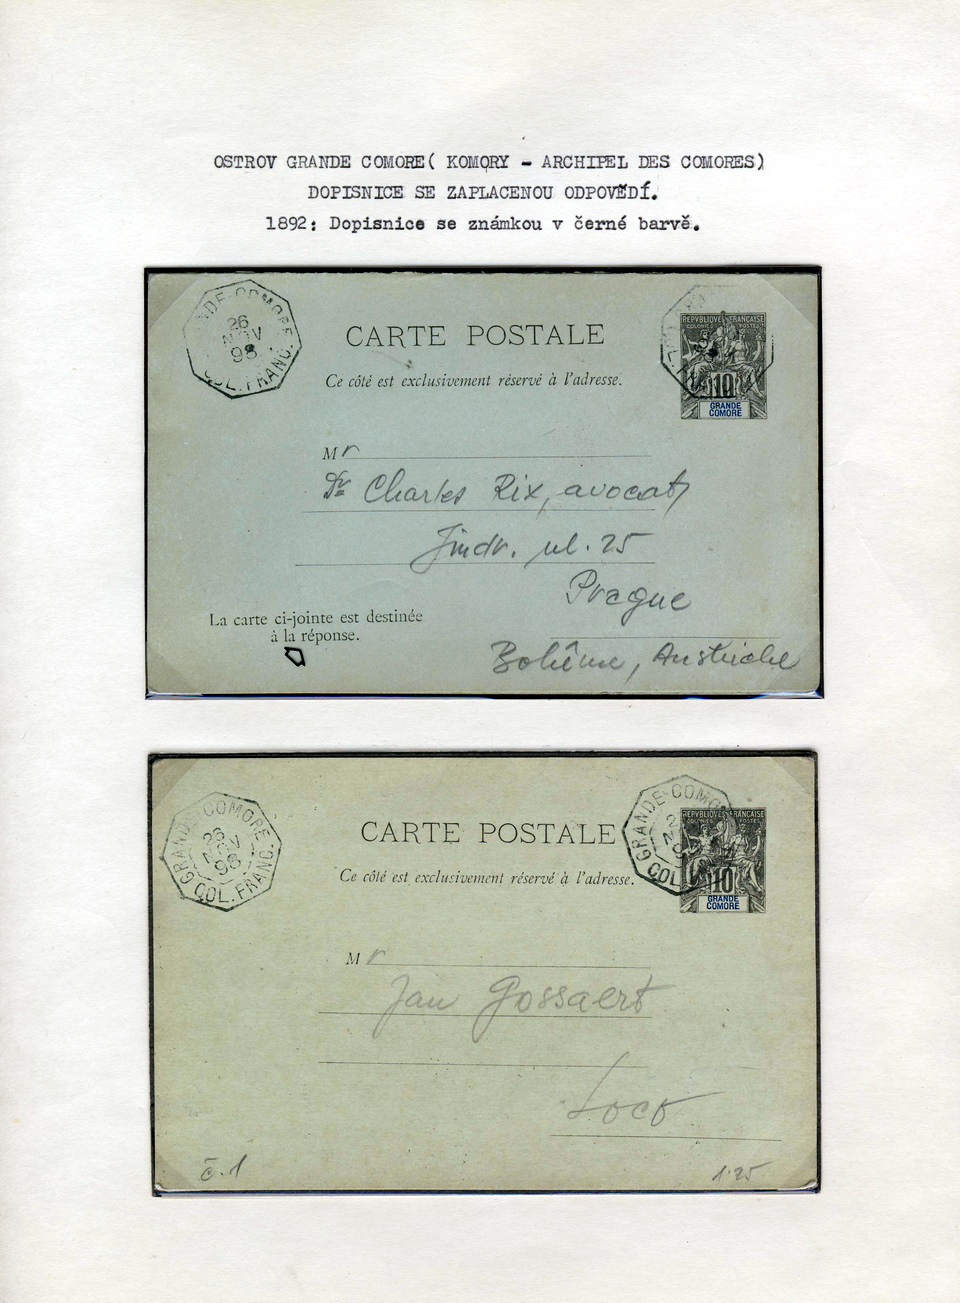 OSTROV GRANDE COMORE( KOMORY - ARCHIPEL DES COMORES)
DOPISNICE SE ZAPLACENOU ODPOVĚDÍ.
1892: Dopisnice se známkou v černé barvě.
GRANDE-COMORE
26
NOV
98
COL. FRANC.
CARTE POSTALE
Ce côté est exclusivement réservé à l'adresse.
REPVBLIQVE FRANÇAISE
COLONIES POSTES
10
GRANDE
COMORE
Mr
Dr Charles Rix, avocat
Jindr. ul. 25
Prague
Bohême, Austriche
La carte ci-jointe est destinée
à la réponse.
GRANDE-COMORE
26
NOV
98
COL. FRANC.
CARTE POSTALE
Ce côté est exclusivement réservé à l'adresse.
GRANDE-COMO
2
N
COL
REPVBLIQVE FRANÇAISE
COLONIES POSTES
10
GRANDE
COMORE
Mr
Jan Gossaert
Loco
č.1
1.25